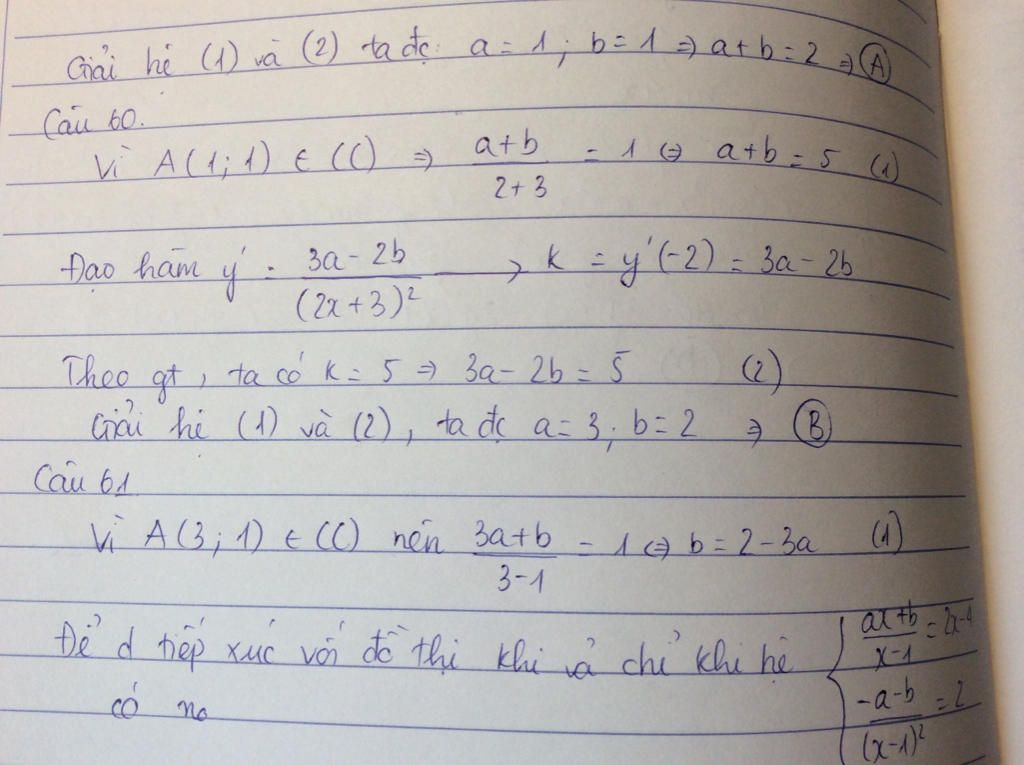 Giải hệ (1) và (2) ta đc: a = 1 ; b = 1 ⇒ a + b = 2 ⇒ Ⓐ
Câu 60.
Vì A(1; 1) ∈ (C) ⇒ (a+b)/(2+3) = 1 ⇔ a + b = 5 (1)
Đạo hàm y' = (3a - 2b)/(2x+3)² → k = y'(-2) = 3a - 2b
Theo gt, ta có k = 5 ⇒ 3a - 2b = 5 (2)
Giải hệ (1) và (2), ta đc a = 3; b = 2 ⇒ Ⓑ
Câu 61
Vì A(3; 1) ∈ (C) nên (3a+b)/(3-1) = 1 ⇔ b = 2 - 3a (1)
Để d tiếp xúc với đồ thị khi và chỉ khi hệ { (ax+b)/(x-1) = 2x-4
có no (-a-b)/(x-1)² = 2